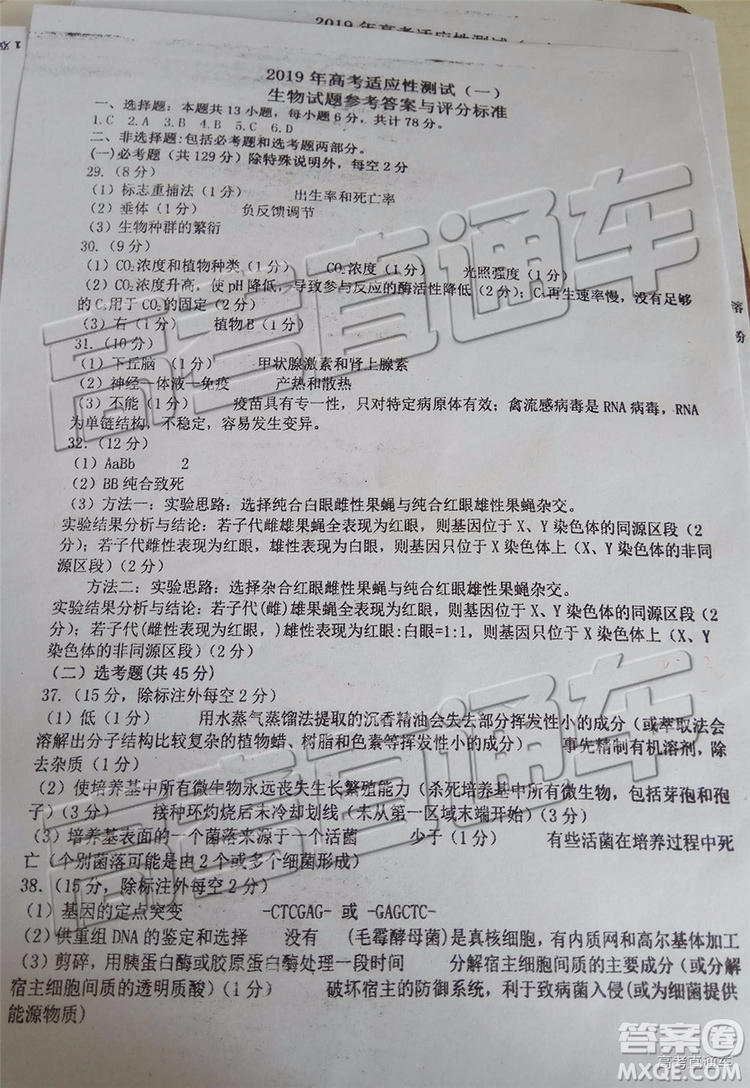 2019年高考适应性测试（一）
生物试题参考答案与评分标准
一、选择题：本题共13小题，每小题6分，共计78分。
1.C 2.A 3.B 4.B 5.C 6.D
二、非选择题:包括必考题和选考题两部分。
(一)必考题（共129分）除特殊说明外，每空2分
29.（8分）
（1）标志重捕法（1分） 出生率和死亡率
（2）垂体（1分） 负反馈调节
（3）生物种群的繁衍
30.（9分）
（1）CO₂浓度和植物种类（1分） CO₂浓度（1分） 光照强度（1分）
（2）CO₂浓度升高，使pH降低，导致参与反应的酶活性降低（2分）；C₅再生速率慢，没有足够
的C₅用于CO₂的固定（2分）
（3）右（1分） 植物B（1分）
31.（10分）
（1）下丘脑（1分） 甲状腺激素和肾上腺素
（2）神经—体液—免疫 产热和散热
（3）不能（1分） 疫苗具有专一性，只对特定病原体有效；禽流感病毒是RNA病毒，RNA
为单链结构，不稳定，容易发生变异。
32.（12分）
（1）AaBb 2
（2）BB纯合致死
（3）方法一：实验思路：选择纯合白眼雌性果蝇与纯合红眼雄性果蝇杂交。
实验结果分析与结论：若子代雌雄果蝇全表现为红眼，则基因位于X、Y染色体的同源区段（2
分）；若子代雌性表现为红眼，雄性表现为白眼，则基因只位于X染色体上（X、Y染色体的非同
源区段）（2分）
方法二：实验思路：选择杂合红眼雌性果蝇与纯合红眼雄性果蝇杂交。
实验结果分析与结论：若子代(雌)雄果蝇全表现为红眼，则基因位于X、Y染色体的同源区段（2
分）；若子代(雌性表现为红眼，)雄性表现为红眼:白眼=1:1，则基因只位于X染色体上（X、Y
染色体的非同源区段）（2分）
（二）选考题(共45分)
37.（15分，除标注外每空2分）
（1）低（1分） 用水蒸气蒸馏法提取的沉香精油会失去部分挥发性小的成分（或萃取法会
溶解出分子结构比较复杂的植物蜡、树脂和色素等挥发性小的成分） 事先精制有机溶剂，除
去杂质（1分）
（2）使培养基中所有微生物永远丧失生长繁殖能力（杀死培养基中所有微生物，包括芽孢和孢
子）（3分） 接种环灼烧后未冷却划线（未从第一区域末端开始）（3分）
（3）培养基表面的一个菌落来源于一个活菌 少于（1分） 有些活菌在培养过程中死
亡（个别菌落可能是由2个或多个细菌形成）
38.（15分，除标注外每空2分）
（1）基因的定点突变 -CTCGAG- 或 -GAGCTC-
（2）供重组DNA的鉴定和选择 没有 （毛霉酵母菌）是真核细胞，有内质网和高尔基体加工
（3）剪碎，用胰蛋白酶或胶原蛋白酶处理一段时间 分解宿主细胞间质的主要成分（或分解
宿主细胞间质的透明质酸）（1分） 破坏宿主的防御系统，利于致病菌入侵(或为细菌提供
能源物质)
高考直通车
高考直通车
高考直通车
答案圈
高考直通车
MXQE.COM